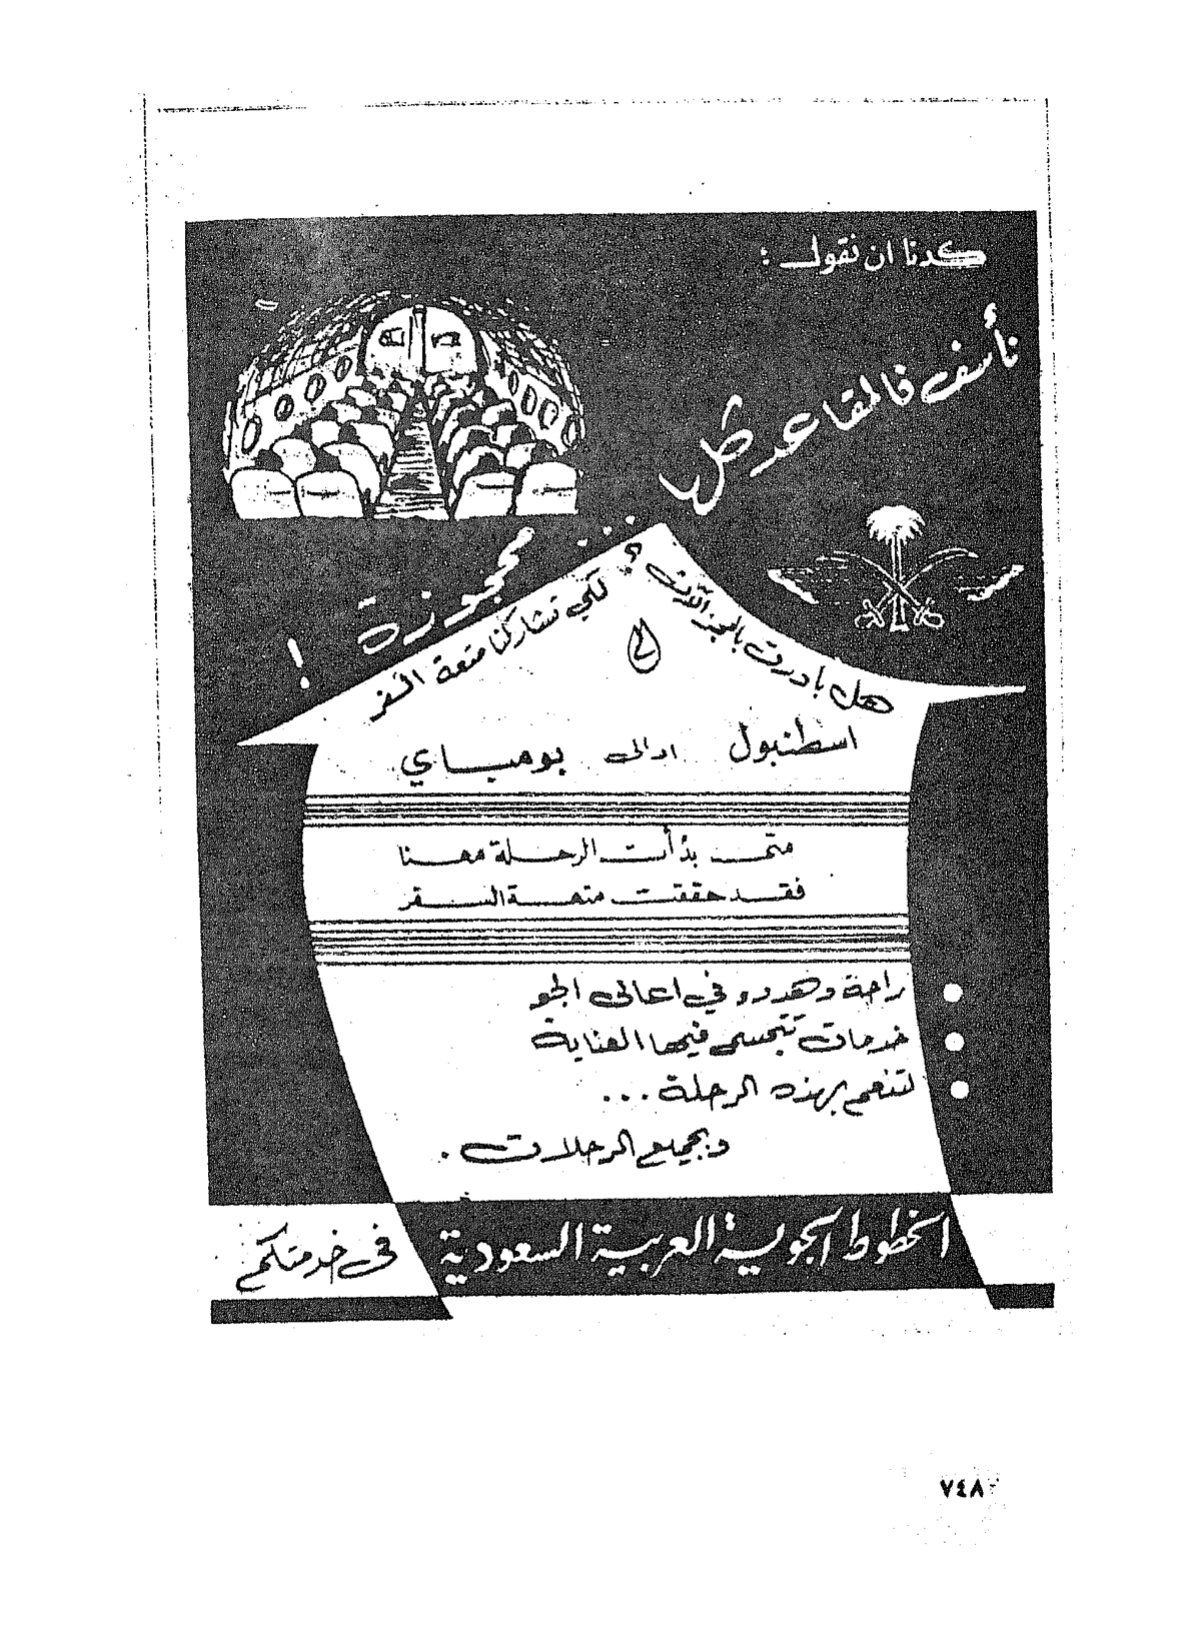 كدنا ان نقول :
نأسف فالمقاعد كلها
محجوزة !
هل بادرت بالحجز الآن ؟
لكي تشاركنا متعة السفر
الى
اسطنبول او الى بومباي
متى بدأت الرحلة معنا
فقد حققت متعة السفر
راحة وهدوء في اعالى الجو
خدمات تتجسم فيها العناية
لتنعم بهذه الرحلة ...
وبجميع الرحلات .
الخطوط الجوية العربية السعودية فى خدمتكم
٧٤٨